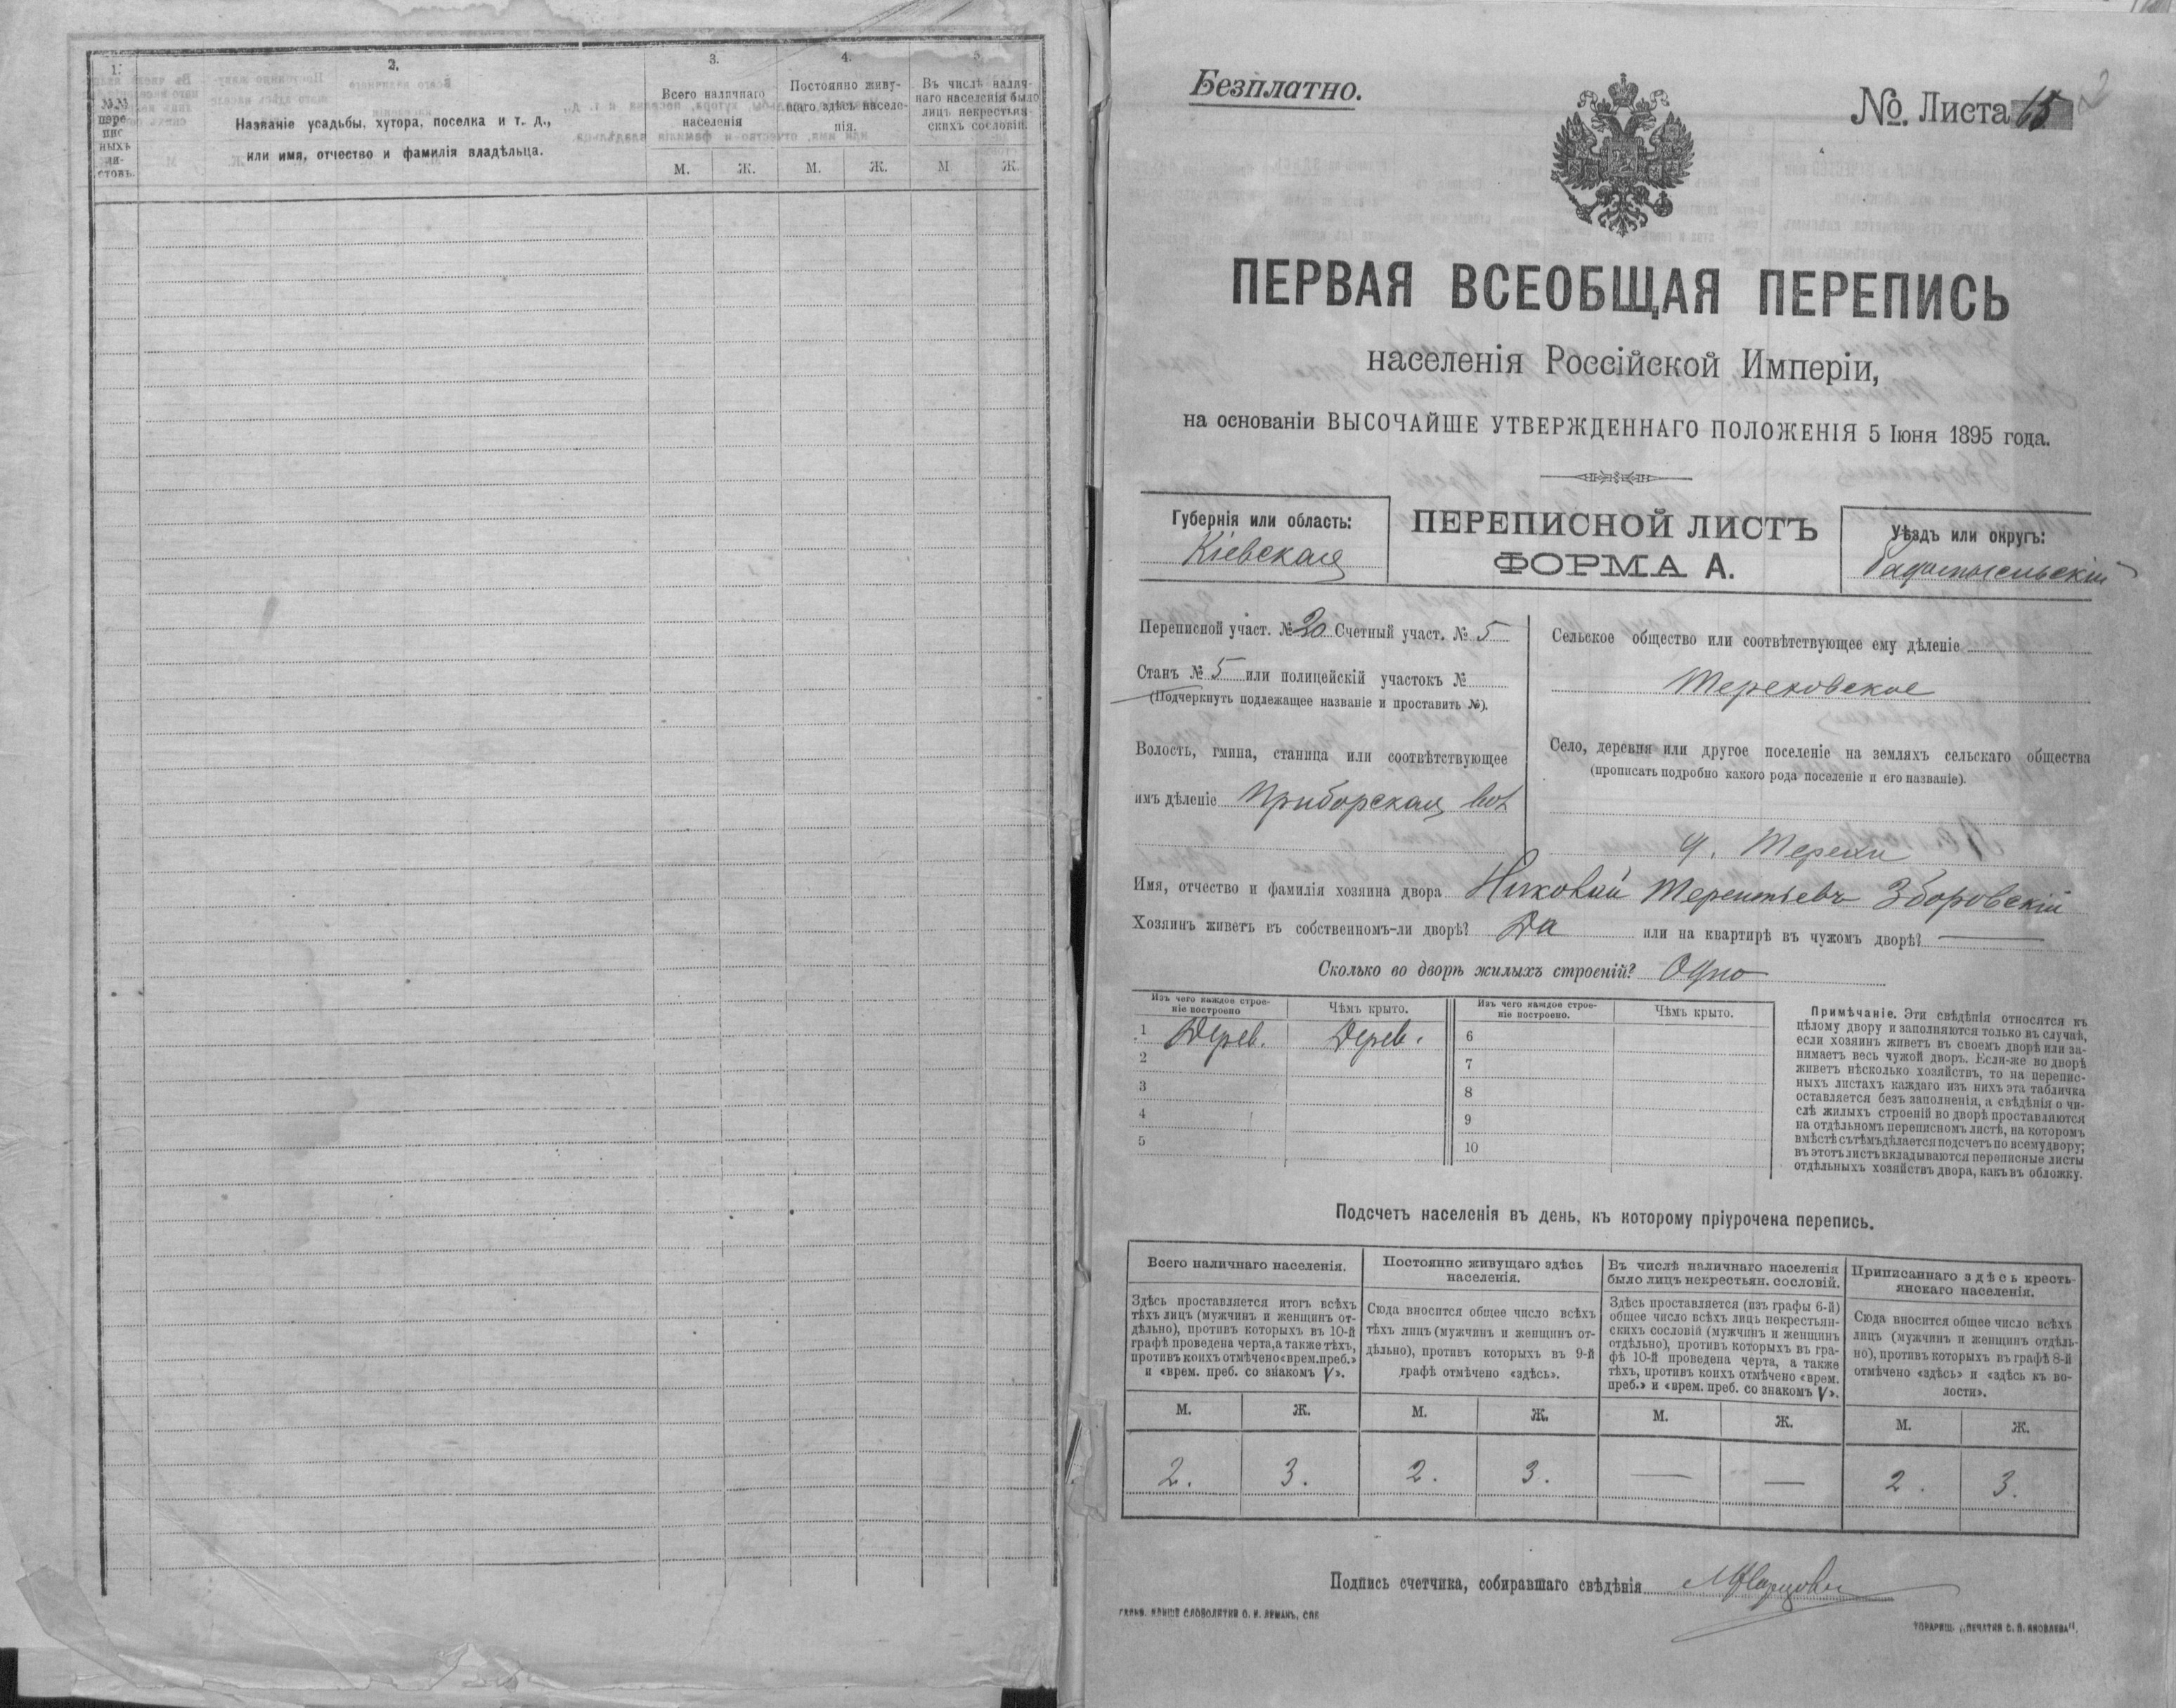 1.
2.
3.
4.
5.
№№ пере пис ныхъ ли- стовъ.
Названіе усадьбы, хутора, поселка и т. д.,
или имя, отчество и фамилія владѣльца.
Всего наличнаго
населенія
Постоянно живу-
щаго здѣсь населе-
нія.
Въ числѣ налич-
наго населенія было
лицъ некрестьян-
скихъ сословій.
М. Ж. М. Ж. М Ж.
Безплатно.
№. Листа 15
2
ПЕРВАЯ ВСЕОБЩАЯ ПЕРЕПИСЬ
населенія Россійской Имперіи,
на основаніи ВЫСОЧАЙШЕ УТВЕРЖДЕННАГО ПОЛОЖЕНІЯ 5 Іюня 1895 года.
Губернія или область:
Кіевская
ПЕРЕПИСНОЙ ЛИСТЪ
ФОРМА А.
Уѣздъ или округъ:
Радомысльскій
Переписной участ. № 20 Счетный участ. № 5
Станъ № 5 или полицейскій участокъ №
(Подчеркнуть подлежащее названіе и проставить №).
Волость, гмина, станица или соотвѣтствующее
имъ дѣленіе Приборская вол
Сельское общество или соотвѣтствующее ему дѣленіе
Тереховское
Село, деревня или другое поселеніе на земляхъ сельскаго общества
(прописать подробно какого рода поселеніе и его названіе).
д. Терехи
Имя, отчество и фамилія хозяина двора Николай Терентьевъ Зборовскій
Хозяинъ живетъ въ собственномъ-ли дворѣ? Да или на квартирѣ въ чужомъ дворѣ? —
Сколько во дворѣ жилыхъ строеній? Одно
Изъ чего каждое строе-
ніе построено
Чѣмъ крыто.
Изъ чего каждое строе-
ніе построено.
Чѣмъ крыто.
1 Дерев. Дерев. 6
2 7
3 8
4 9
5 10
Примѣчаніе. Эти свѣдѣнія относятся къ
цѣлому двору и заполняются только въ случаѣ,
если хозяинъ живетъ въ своемъ дворѣ или за-
нимаетъ весь чужой дворъ. Если-же во дворѣ
живетъ нѣсколько хозяйствъ, то на перепис-
ныхъ листахъ каждаго изъ нихъ эта табличка
оставляется безъ заполненія, а свѣдѣнія о чи-
слѣ жилыхъ строеній во дворѣ проставляются
на отдѣльномъ переписномъ листѣ, на которомъ
вмѣстѣ съ тѣмъ дѣлается подсчетъ по всему двору;
въ этотъ листъ вкладываются переписные листы
отдѣльныхъ хозяйствъ двора, какъ въ обложку.
Подсчетъ населенія въ день, къ которому пріурочена перепись.
Всего наличнаго населенія.
Здѣсь проставляется итогъ всѣхъ
тѣхъ лицъ (мужчинъ и женщинъ от-
дѣльно), противъ которыхъ въ 10-й
графѣ проведена черта, а также тѣхъ,
противъ коихъ отмѣчено «врем. преб.»
и «врем. преб. со знакомъ V».
Постоянно живущаго здѣсь
населенія.
Сюда вносится общее число всѣхъ
тѣхъ лицъ (мужчинъ и женщинъ от-
дѣльно), противъ которыхъ въ 9-й
графѣ отмѣчено «здѣсь».
Въ числѣ наличнаго населенія
было лицъ некрестьян. сословій.
Здѣсь проставляется (изъ графы 6-й)
общее число всѣхъ лицъ некрестьян-
скихъ сословій (мужчинъ и женщинъ
отдѣльно), противъ которыхъ въ гра-
фѣ 10-й проведена черта, а также
тѣхъ, противъ коихъ отмѣчено «врем.
преб.» и «врем. преб. со знакомъ V».
Приписаннаго здѣсь кресть-
янскаго населенія.
Сюда вносится общее число всѣхъ
лицъ (мужчинъ и женщинъ отдѣль-
но), противъ которыхъ въ графѣ 8-й
отмѣчено «здѣсь» и «здѣсь къ во-
лости».
М. Ж. М. Ж. М. Ж. М. Ж.
2. 3. 2. 3. — — 2. 3.
Подпись счетчика, собиравшаго свѣдѣнія
СЛОВОЛИТНИ О. И. ЛЕМАНЪ, СПБ
ТОВАРИЩ. „ПЕЧАТНЯ С. П. ЯКОВЛЕВА".